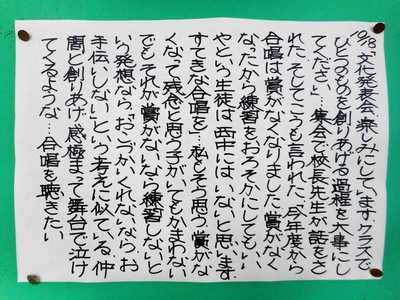 10/18「文化発表会…楽しみにしています。クラスで
ひとつのものを創りあげる過程を大事にし
てください」…集会で校長先生が話をさ
れた。そしてこうも言われた。「今年度から
合唱は賞がなくなりました。賞がなく
なったから練習をおろそかにしてもいい
やという生徒は西中にはいないと思います。
すてきな合唱を」…私もそう思う。賞がな
くなって残念と思う子がいてもかまわない
でも、それが賞がないなら練習しないと
いう発想なら、「おこづかいくれないなら、お
手伝いしない」という考えに似ている。仲
間と創りあげ、感極まって舞台で泣け
てくるような…合唱を聴きたい